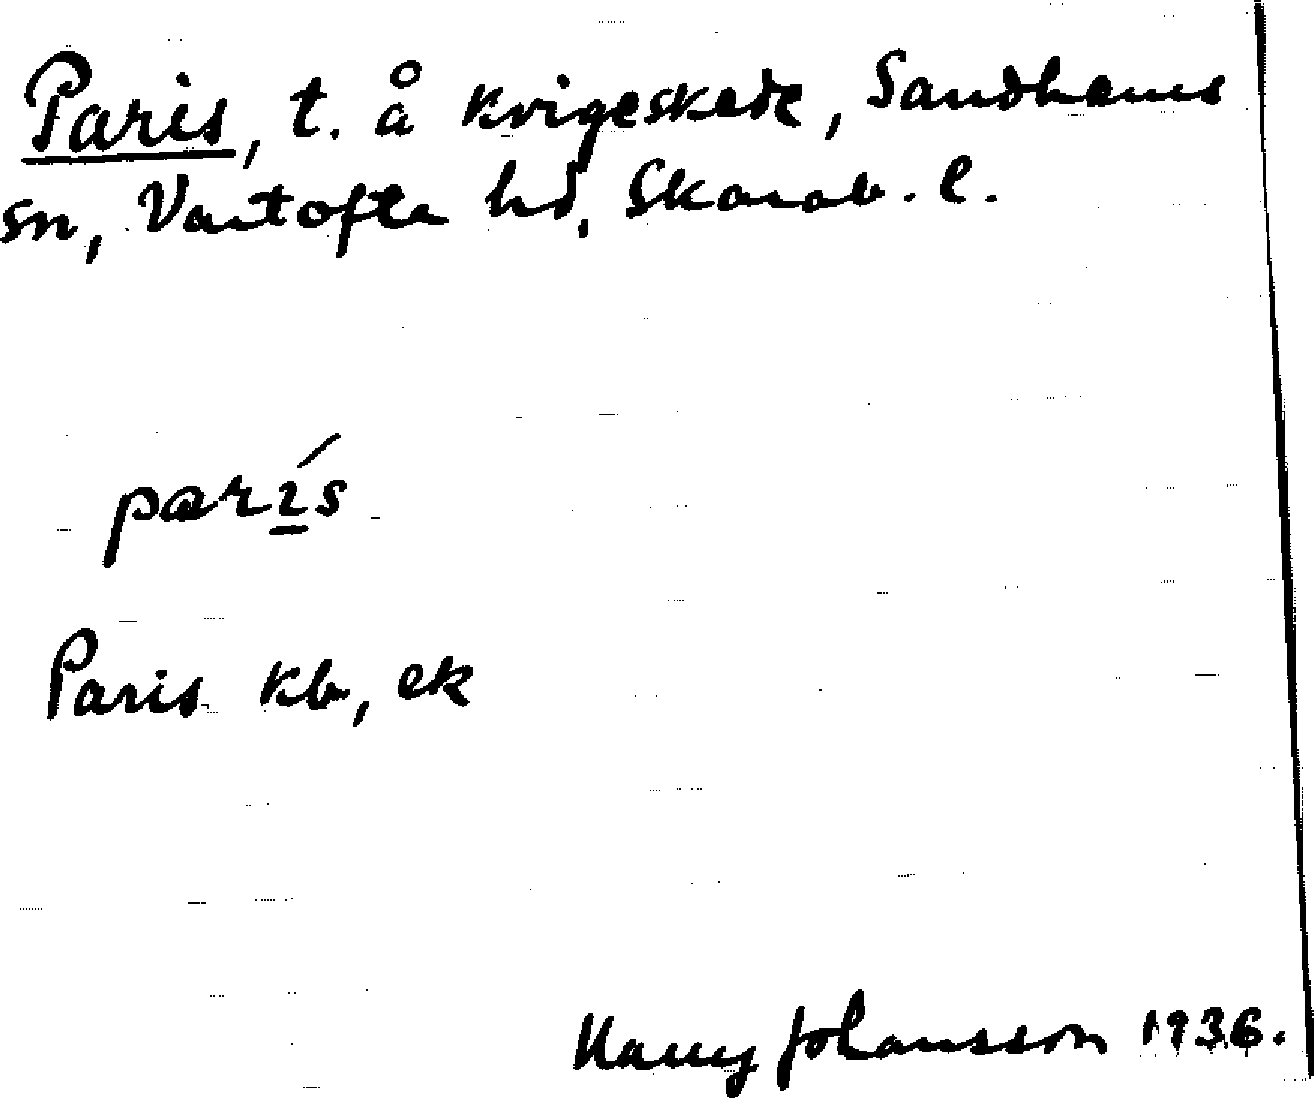 Paris, t. å Kvigeskede, Sandhems
sn, Vartofta hd, Skarab. l.
parı̱́s
Paris kb, ek
Harry Johansson 1936.